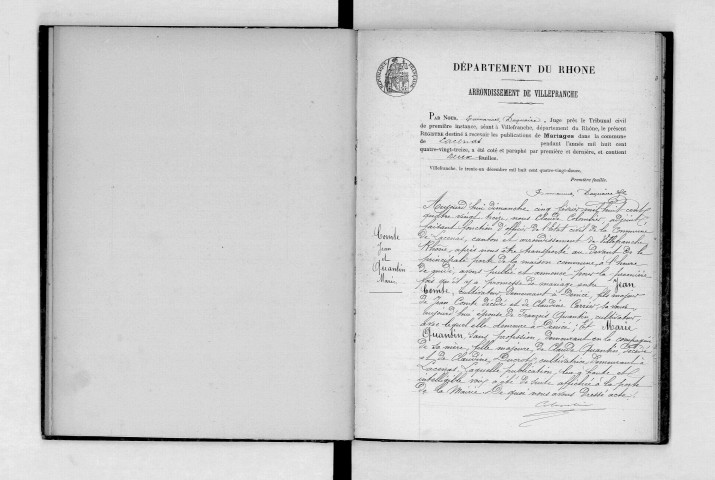 DÉPARTEMENT DU RHONE
ARRONDISSEMENT DE VILLEFRANCHE
PAR NOUS, Juge près le Tribunal civil
de première instance, séant à Villefranche, département du Rhône, le présent
REGISTRE destiné à recevoir les publications de Mariages dans la commune
de Lacenas pendant l'année mil huit cent
quatre-vingt-treize, a été coté et paraphé par première et dernière, et contient
deux feuilles.
Villefranche, le trente-un décembre mil huit cent quatre-vingt-douze.
Première feuille.
Comte
Jean
et
Quantin
Marie
Aujourd'hui dimanche cinq février mil huit cent
quatre vingt treize, nous Claude Colombier, adjoint
faisant fonction d'officier de l'état civil de la Commune
de Lacenas, canton et arrondissement de Villefranche
Rhône, après nous être transporté au devant de la
principale porte de la maison commune, à l'heure
de midi, avons publié et annoncé pour la première
fois qu'il y a promesse de mariage entre Jean
Comte, cultivateur, demeurant à Denicé, fils majeur
de Jean Comte décédé et de Claudine Carrier, sa veuve
aujourd'hui épouse de François Quantin, cultivateur
avec lequel elle demeure à Denicé; et Marie
Quantin, sans profession, demeurant en la compagnie
de sa mère, fille majeure de Claude Quantin décédé
et de Claudine cultivatrice demeurant à
Lacenas. Laquelle publication, lue à haute et
intelligible voix, a été de suite affichée à la porte
de la Mairie. De quoi nous avons dressé acte.